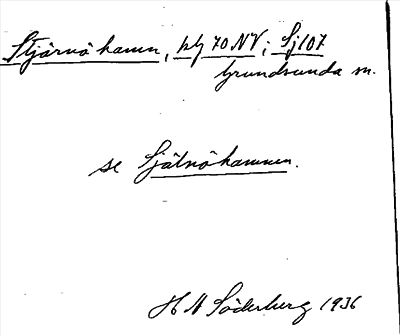 Stjärnö hamn, blj 70 NV; Sj 107
Grundsunda sn.
se Själnöhamnen.
H N Söderberg 1936